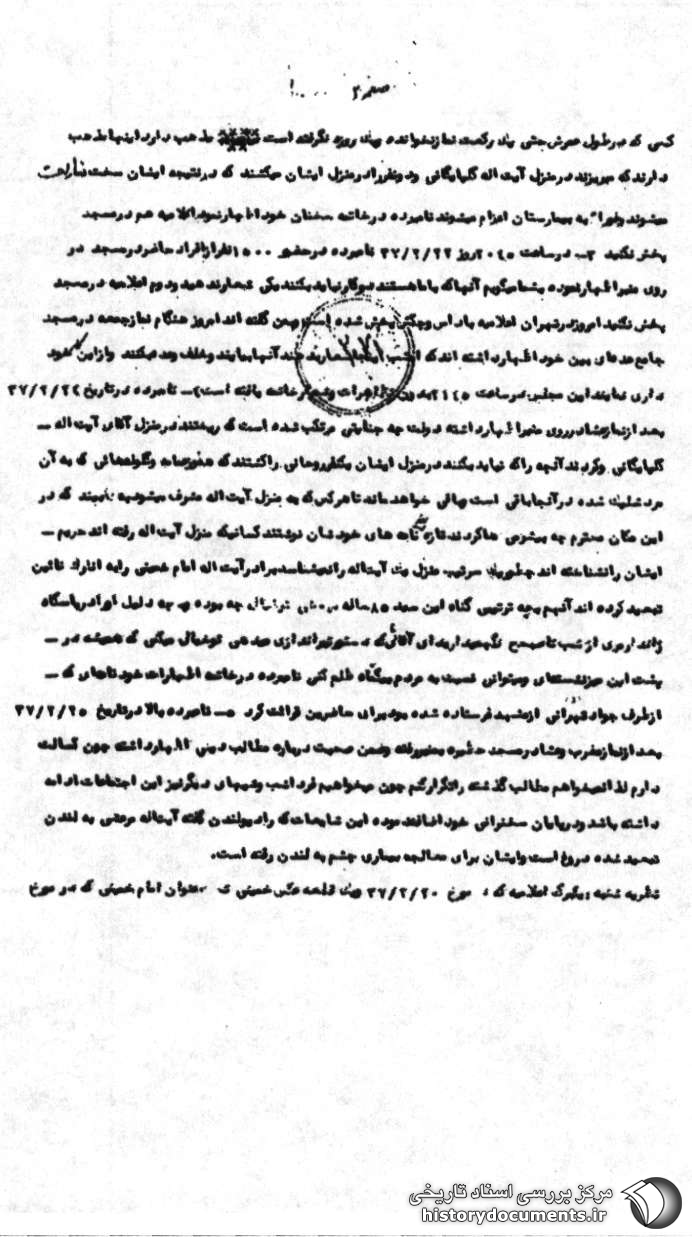 صفحه ۲
کسی که در طول عمرش حتی یک رکعت نماز نخوانده و یک روز روزه نگرفته است مذهب دارد اینها مذهب
دارند که میریزند در منزل آیت اله گلپایگانی و دو نفر را در منزل ایشان میکشند که در نتیجه ایشان سخت ناراحت
میشوند و فورا" به بیمارستان اعزام میشوند نامبرده در خاتمه سخنان خود اظهار نمود اعلامیه هم در مسجد
پخش نکنید ۳ـ در ساعت ۲۰۴۵ روز ۳۷/۲/۲۲ نامبرده در حضور ۱۵۰۰ نفر از افراد حاضر در مسجد در
روی منبر اظهار نموده بشما میگویم آنها که با ما هستند دو کار نباید بکنند یکی شعار ندهید دوم اعلامیه در مسجد
پخش نکنید امروز در تهران اعلامیه با داس و چکش پخش شده است و بمن گفته اند امروز هنگام نماز جمعه در مسجد
جامع عده‌ای بمن خود اظهار داشته اند که امشب شعار بدهند آنها بیایند و خلف وعده میکنند و از این کار خود
داری نمایند این مجلس در ساعت ۲۱۴۵ بدون تظاهرات و شعار خاتمه یافته است ۴ـ نامبرده در تاریخ ۳۷/۲/۲۴
بعد از نماز عشاء در روی منبر اظهار داشته دولت چه جنایتی مرتکب شده است که ریختند در منزل آقای آیت اله ـ
گلپایگانی و کردند آنچه را که نباید بکنند در منزل ایشان یکنفر روحانی را کشتند که مغز و گلوله‌هائی که به آن
مرد شلیک شده در آنجا باقی است و باقی خواهد ماند تا هر کس که به منزل آیت اله مشرف میشود به بیند که در
این مکان محترم چه بیشرمی ها کردند تازه نامه های خودشان نوشتند کسانیکه منزل آیت اله رفته اند حریم ـ
ایشان را نشناخته اند چطور یک سرتیپ منزل یک آیت اله را نمیشناسد برادر آیت اله امام خمینی را به انارک نائین
تبعید کرده اند آنهم بچه ترتیبی گناه این سید ۸۵ ساله چه بوده و به چه دلیل او را در پاسگاه
ژاندارمری از شب تا صبح نگهمیدارید ای آقائی که دستور تیراندازی میدهی تو خیال میکنی که همیشه در ـ
پشت این میز نشسته‌ای و میتوانی نسبت به مردم بیگناه ظلم کنی نامبرده در خاتمه اظهارات خود نامه‌ای که ـ
از طرف جواد تهرانی از مشهد فرستاده شده بود برای حاضرین قرائت کرد ۵ـ نامبرده بالا در تاریخ ۳۷/۲/۲۵
بعد از نماز مغرب و عشاء در مسجد حظیره بمنبر رفته و ضمن صحبت درباره مطالب دینی اظهار داشته چون کسالت
دارم لذا نمیخواهم مطالب گذشته را تکرار کنم چون میخواهیم فردا شب و شبهای دیگر نیز این اجتماعات ادامه
داشته باشد و در پایان سخنرانی خود اضافه نموده این شایعات که رادیو لندن گفته آیت اله مرعشی به لندن
تبعید شده دروغ است و ایشان برای معالجه بیماری چشم به لندن رفته است.
نظریه شنبه : یکبرگ اعلامیه که در مورخ ۳۷/۲/۲۰ و یک قطعه عکس خمینی تحت عنوان امام خمینی که در مورخ
مرکز بررسی اسناد تاریخی
historydocuments.ir